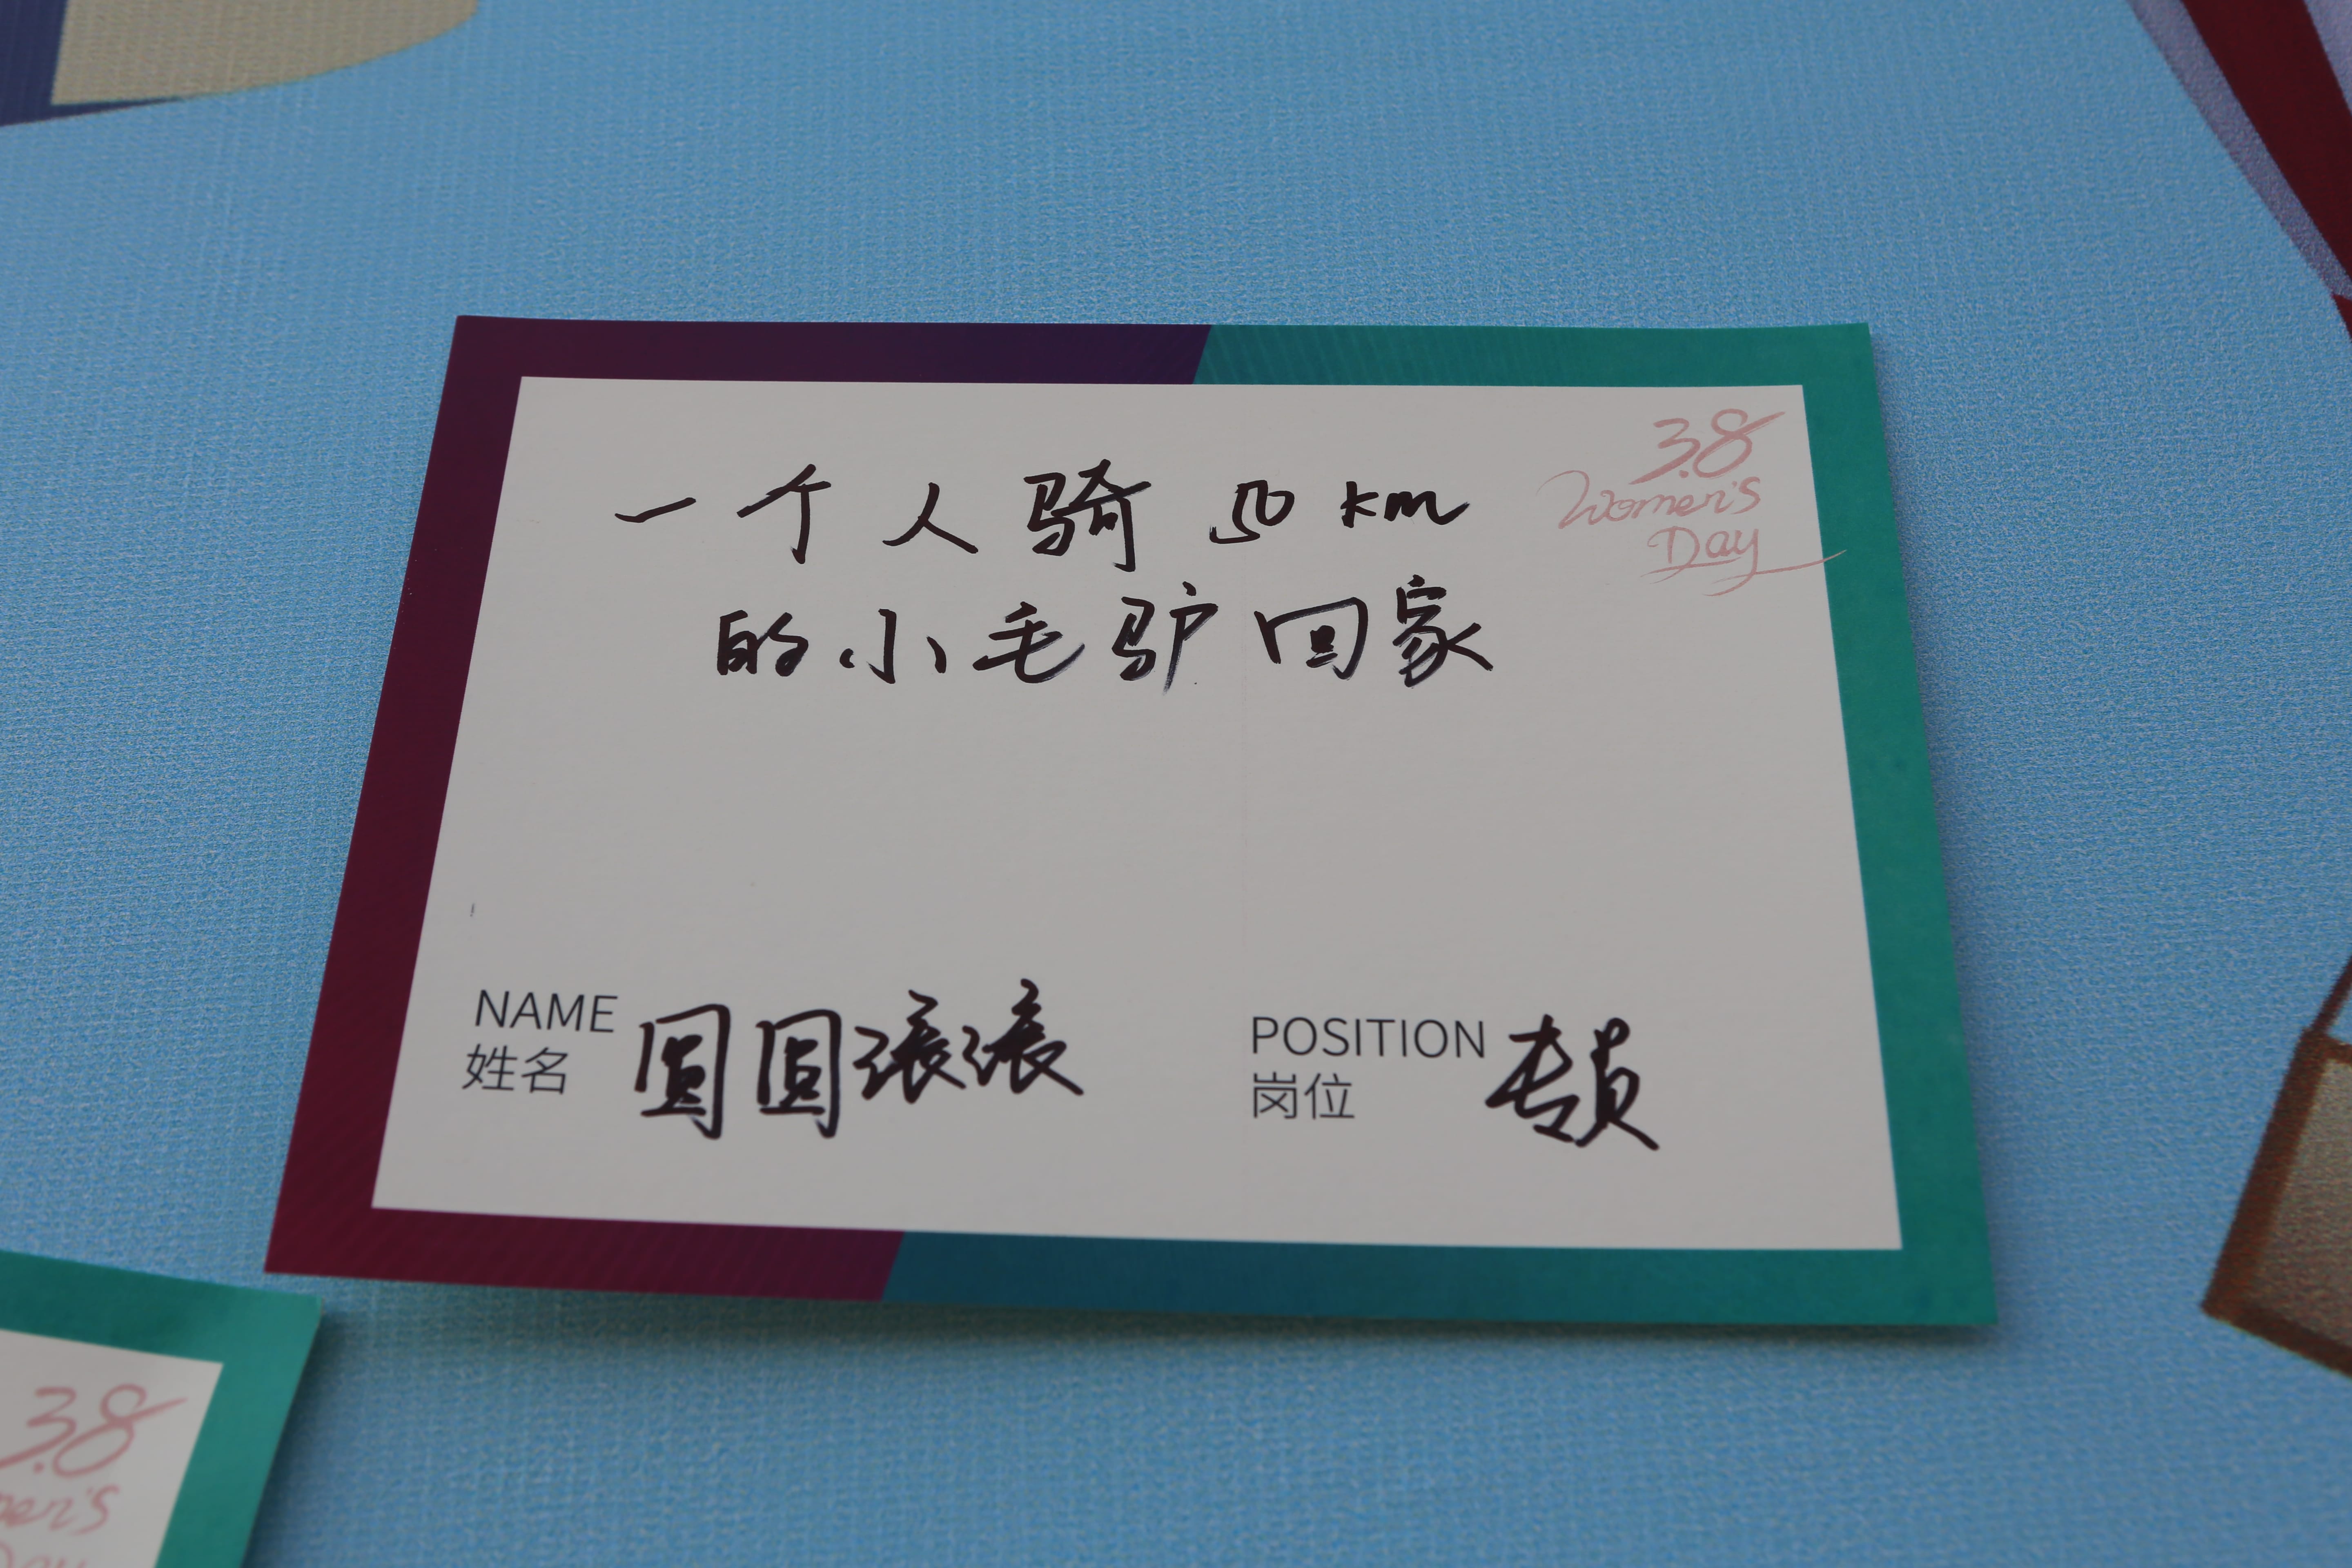 一个人骑50km
的小毛驴回家
3.8
Women's
Day
NAME
姓名
圆圆滚滚
POSITION
岗位
3.8
Day